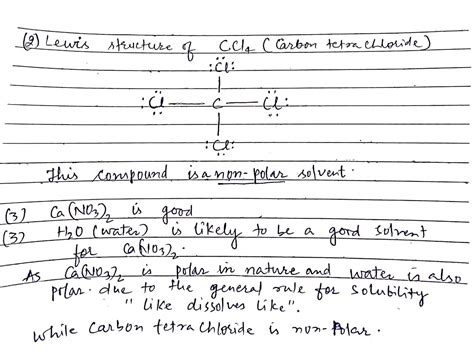 (2) Lewis structure of CCl4 (Carbon tetra chloride)
:Cl:
:Cl — C — Cl:
:Cl:
This compound is a non-polar solvent.
(3) Ca(NO3)2 is good
(3) H2O (water) is likely to be a good solvent
for Ca(NO3)2.
As Ca(NO3)2 is polar in nature and water is also
polar. due to the general rule for solubility
"like dissolves like".
while Carbon tetra chloride is non-Polar.